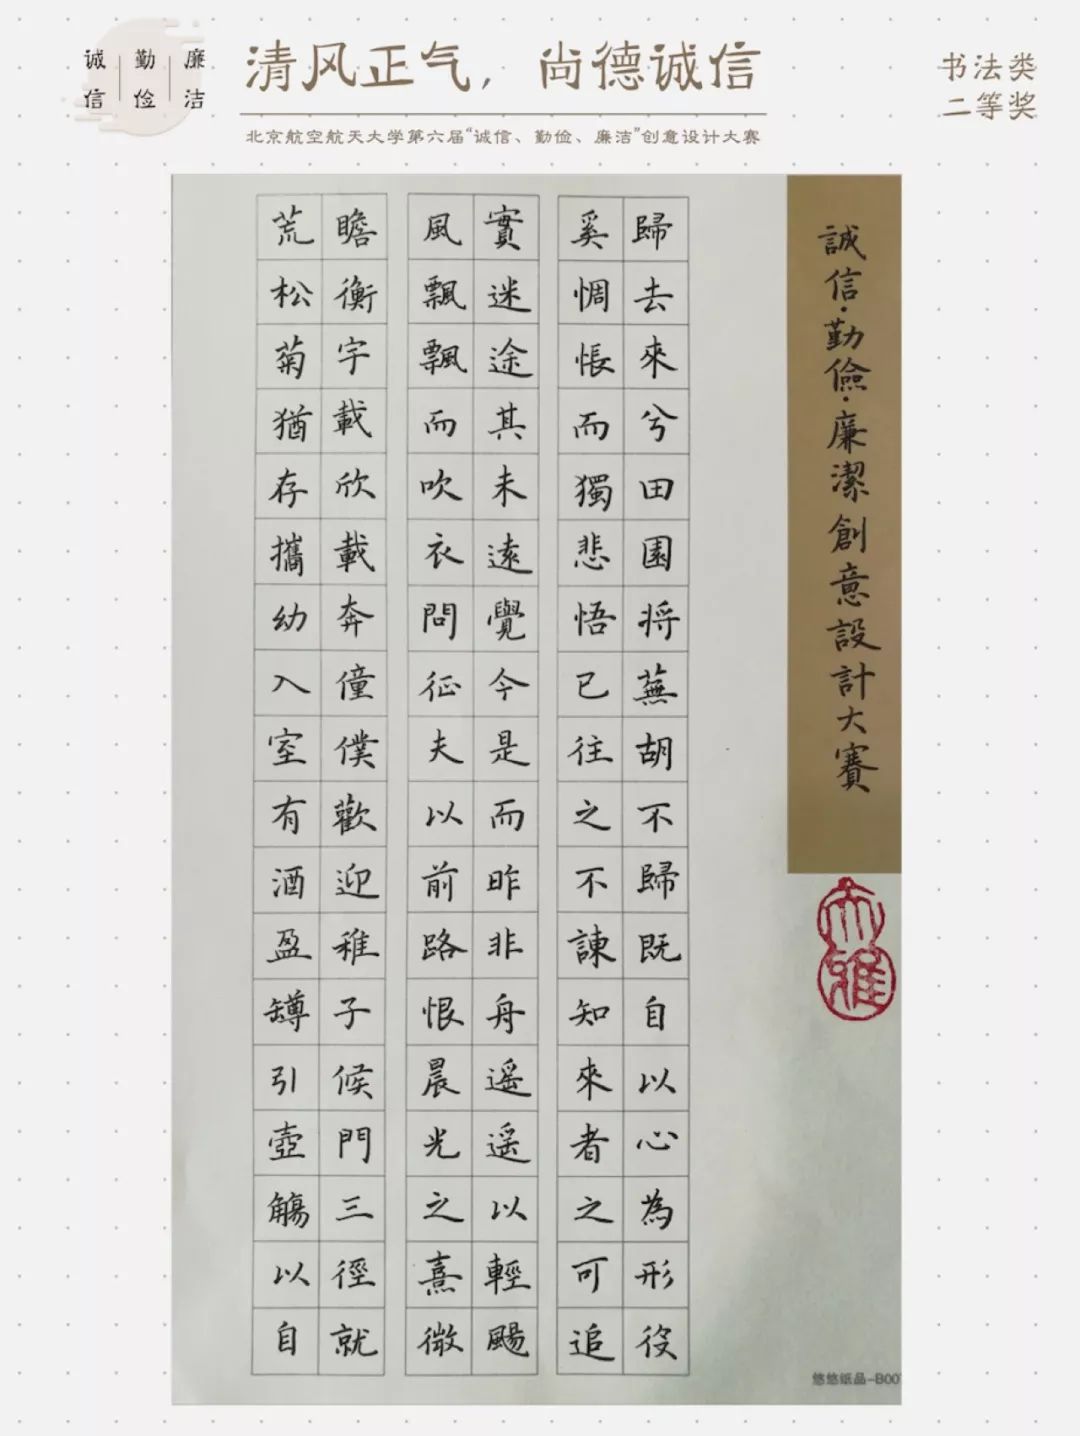 诚信 勤俭 廉洁
清风正气，尚德诚信
北京航空航天大学第六届“诚信、勤俭、廉洁”创意设计大赛
书法类
二等奖
誠信·勤儉·廉潔創意設計大賽
大雅
歸去來兮田園将蕪胡不歸既自以心為形役
奚惆悵而獨悲悟已往之不諫知來者之可追
實迷途其未遠覺今是而昨非舟遥遥以輕颺
風飄飄而吹衣問征夫以前路恨晨光之熹微
瞻衡宇載欣載奔僮僕歡迎稚子候門三徑就
荒松菊猶存攜幼入室有酒盈罇引壺觴以自
悠悠纸品-B00